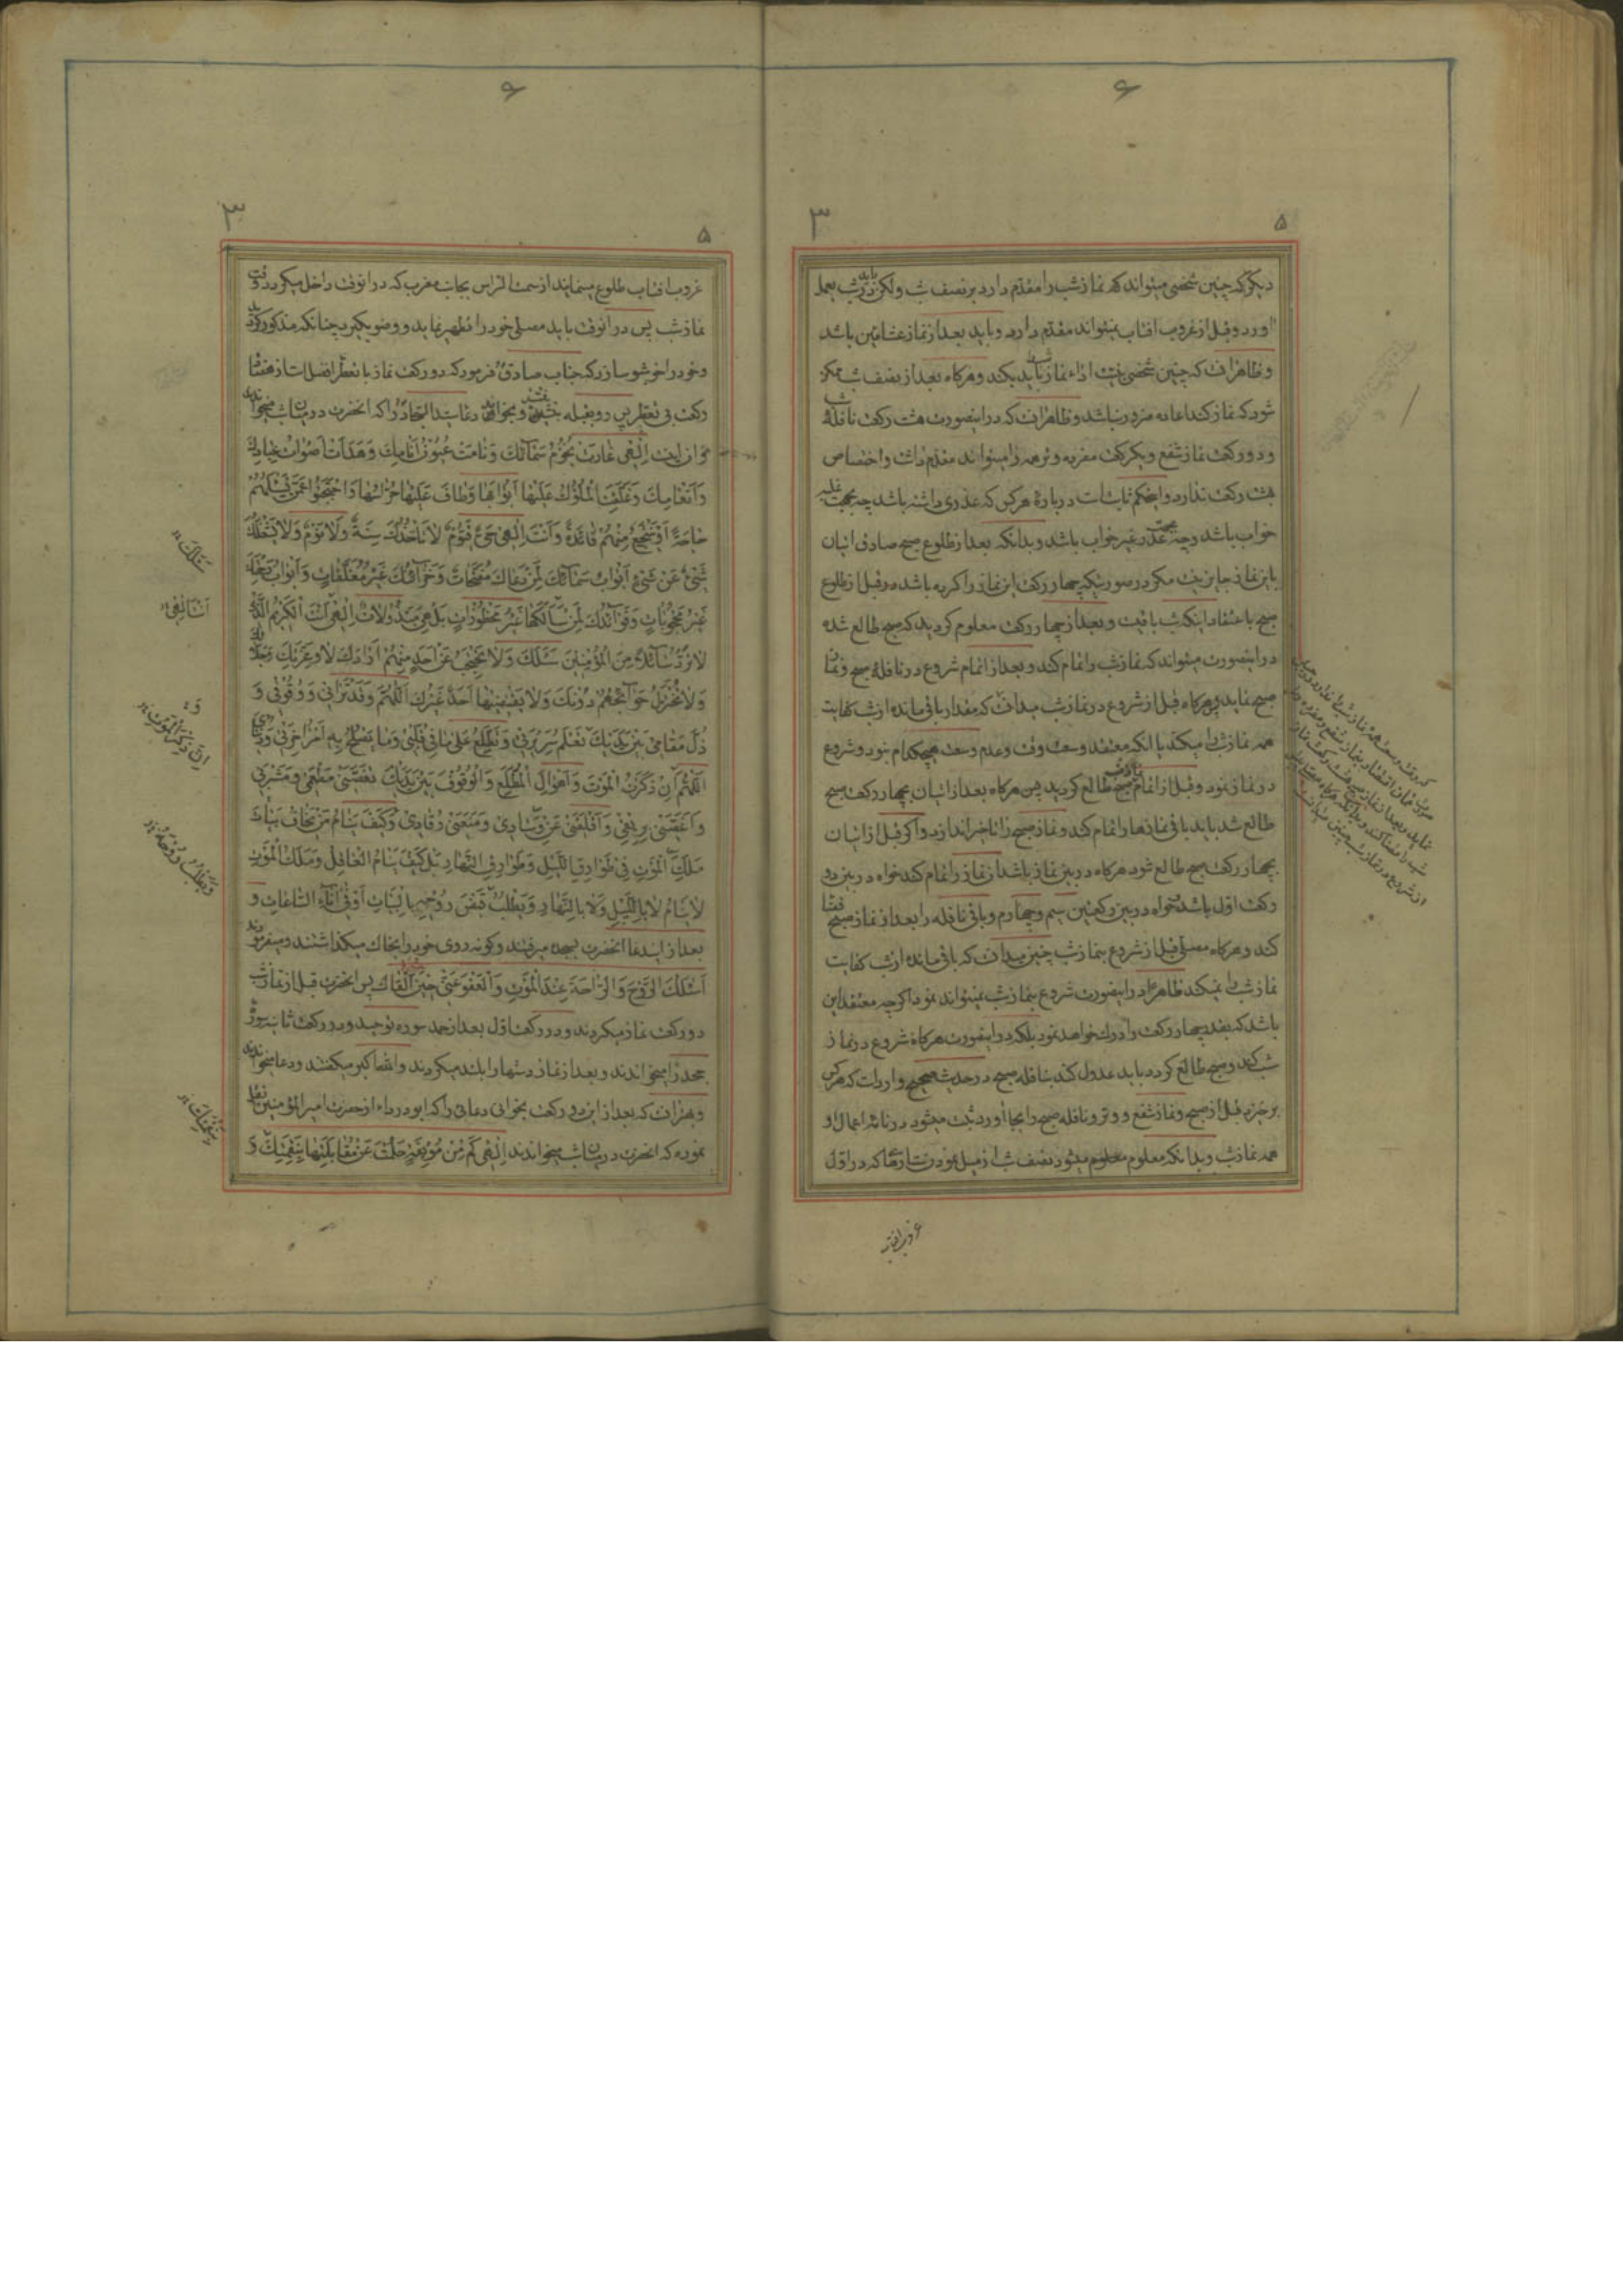 ۶
۳
۵
دیگر که چنین شخصی میتواند که نماز شب را مقدم دارد بر نصف شب ولکن باید در شب بعمل
اورد و قبل از غروب افتاب نمیتواند مقدم دارد و باید بعد از نماز عشائین باشد
و ظاهر انست که چنین شخصی نیت اداء نماز شب باید بکند و هرکاه بعد از نصف شب ممکن
شود که نماز کند اعاده ضرور نباشد و ظاهر انست که در اینصورت هشت رکعت نافلهٔ شب
و دو رکعت نماز شفع و یکرکعت مفرده وتر همه را میتواند مقدم داشت و اختصاص
بهشت رکعت ندارد و اینحکم ثابتست دربارهٔ هرکس که عذری داشته باشد چه بجهت غلبه
خواب باشد و چه بجهت عذر غیر خواب باشد و بدانکه بعد از طلوع صبح صادق اتیان
باین نماز جایز نیست مکر در صورتیکه چهار رکعت این نماز را کرده باشد در قبل از طلوع
صبح باعتقاد اینکه شب باقیست و بعد از چهار رکعت معلوم کردید که صبح طالع شده
در اینصورت میتواند که نماز شب را تمام کند و بعد از اتمام شروع در نافلهٔ صبح و نماز
صبح نماید و هرکاه قبل از شروع در نماز شب میدانست که مقدار باقی مانده از شب کفایت
همه نماز شب را میکند یا انکه معتقد وسعت وقت و عدم وسعت هیچکدام نبود و شروع
در نماز نمود و قبل از اتمام نماز شب صبح طالع کردید پس هرکاه بعد از اتیان بچهار رکعت صبح
طالع شد باید باقی نمازها را تمام کند و نماز صبح را تاخیر اندازد و اکر قبل از اتیان
بچهار رکعت صبح طالع شود هرکاه در بین نماز باشد ان نماز را تمام کند خواه در بین دو
رکعت اول باشد و خواه در بین رکعتین سیم و چهارم و باقی نافله را بعد از نماز صبح قضا
کند و هرکاه مصلی قبل از شروع بنماز شب چنین میدانست که باقی مانده از شب کفایت
نماز شب را نمیکند ظاهرا در اینصورت شروع بنماز شب نمیتواند نمود اکرچه معتقد این
باشد که بقدر چهار رکعت را درک خواهد نمود بلکه در اینصورت هرکاه شروع در نماز
شب کند و صبح طالع کردد باید عدول کند بنافله صبح در حدیث صحیح وارد است که هرکس
برخیزد قبل از صبح و نماز شفع و وتر و نافله صبح را بجا اورد ثبت میشود در نامه اعمال او
همه نماز شب و بدانکه معلوم میشود نصف شب از میل نمودن ستارها که در اول
غروب افتاب
۶
۳
۵
غروب افتاب طلوع مینمایند از سمت الراس بجانب مغرب که در انوقت داخل میکردد وقت
نماز شب پس در انوقت باید مصلی خود را مطهر نماید و وضو بکیرد چنانکه مذکور کردید
و خود را خوشبو سازد که جناب صادق ع فرمود که دو رکعت نماز با تعطر افضل است از هفتاد
رکعت بی تعطر پس رو بقبله بنشیند و بخواند دعاء سید السجاد را که انحضرت در میان شب میخواندند
و ان اینست اِلٰهی غارَت نُجُومُ سَمآئِکَ وَنامَت عُیُونُ اَنامِکَ وَهَدَأَت اَصواتُ عِبادِکَ
وَاَنعامِکَ وَغَلَّقَتِ المُلُوکُ عَلَیها اَبوابَها وَطافَ عَلَیها حُرّاسُها وَاحتَجَبُوا عَمَّن یَسئَلُهُم
حاجَةً اَو یَنتَجِعُ مِنهُم فائِدَةً وَاَنتَ اِلٰهی حَیٌّ قَیُّومٌ لا تَاخُذُکَ سِنَةٌ وَلا نَومٌ وَلا یَشغَلُکَ
شَیءٌ عَن شَیءٍ اَبوابُ سَمآئِکَ لِمَن دَعاکَ مُفَتَّحاتٌ وَخَزآئِنُکَ غَیرُ مُغَلَّقاتٍ وَاَبوابُ رَحمَتِکَ
غَیرُ مَحجُوباتٍ وَفَوآئِدُکَ لِمَن سَاَلَکَها غَیرُ مَحظُوراتٍ بَل هِیَ مَبذُولاتٌ اِلٰهی اَنتَ الکَریمُ الَّذی
لا تَرُدُّ سآئِلاً مِنَ المُؤمِنینَ سَئَلَکَ وَلا تَحتَجِبُ عَن اَحَدٍ مِنهُم اَرادَکَ لا وَعِزَّتِکَ وَجَلالِکَ
وَلا تُختَزَلُ حَوآئِجُهُم دُونَکَ وَلا یَقضیها اَحَدٌ غَیرُکَ اَللّٰهُمَّ وَقَد تَرانی وَوُقُوفی وَ
ذُلَّ مَقامی بَینَ یَدَیکَ تَعلَمُ سَریرَتی وَتَطَّلِعُ عَلی ما فی قَلبی وَما یَصلُحُ بِهِ اَمرُ اٰخِرَتی وَدُنیایَ
اَللّٰهُمَّ اِن ذَکَرتُ المَوتَ وَاَهوالَ المُطَّلَعِ وَالوُقُوفَ بَینَ یَدَیکَ نَغَّصَنی مَطعَمی وَمَشرَبی
وَاَغَصَّنی بِریقی وَاَقلَقَنی عَن وِسادی وَمَنَعَنی رُقادی وَکَیفَ یَنامُ مَن یَخافُ بَیاتَ
مَلَکِ المَوتِ فی طَوارِقِ اللَّیلِ وَطَوارِقِ النَّهارِ بَل کَیفَ یَنامُ العاقِلُ وَمَلَکُ المَوتِ
لا یَنامُ لا بِاللَّیلِ وَلا بِالنَّهارِ وَیَطلُبُ قَبضَ رُوحِهِ بِالبَیاتِ اَو فی اٰناءِ السّاعاتِ و
بعد از ایندعا انحضرت بسجده میرفتند و کونه روی خود را بخاک میکذاشتند و میفرمودند
اَسئَلُکَ الرَّوحَ وَالرّاحَةَ عِندَ المَوتِ وَالعَفوَ عَنّی حینَ اَلقاکَ پس انحضرت قبل از نماز شب
دو رکعت نماز میکردند و در رکعت اول بعد از حمد سوره توحید و در رکعت ثانیه سورهٔ
جحد را میخواندند و بعد از نماز دستها را بلند میکردند و الله اکبر میکفتند و دعا میخواندند
و بهتر انست که بعد از این دو رکعت بخوانی دعائی را که ابو درداء از حضرت امیر المؤمنین نقل
نموده که انحضرت در میان شب میخواندند اِلٰهی کَم مِن مُوبِقَةٍ حَلُمتَ عَن مُقابَلَتِها بِنِقمَتِکَ وَ
سَئَلَکَ
وَ
اِنَّ ذِکرَ المَوتِ
وَیَطلُبُ رُوحَهُ